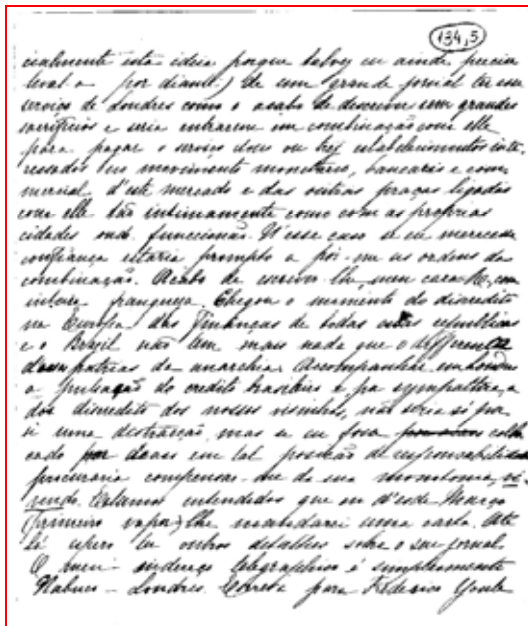 134,5
cialmente esta ideia porque talvez eu ainda precise
leval-a por diante.) de um grande jornal ter esse
serviço de Londres como o acabo de descrever sem grandes
sacrificios e seria entrarem em combinação com elle
para pagar o serviço dous ou trez estabelecimentos inte-
ressados no movimento monetario, bancario e com-
mercial d'este mercado e das outras praças ligadas
com elle tão intimamente como com as proprias
cidades onde funccionão. N'esse caso se eu merecesse
confiança estaria prompto a pôr-me as ordens da
combinação. Acabo de escrever-lhe, meu caro, com
inteira franqueza. Chegou o momento do discredito
na Europa das Finanças de todas essas republicas
e o Brazil não tem mais nada que o differencie
das patrias da anarchia. Acompanhar
a pulsação do credito brasileiro e a sympathica
dos discredito dos nossos visinhos, não seria só
si uma distracção, mas se eu fosse collo-
cado por doses em tal posição de responsabilidade
procuraria compensar-me da sua monotonia, vi-
vendo. Estamos entendidos que em d'esde Março
(primeiro vapor) lhe mandarei uma carta. Até
lá espero ter outros detalhes sobre o seu jornal.
O meu endereço telegraphico é simplesmente
Nabuco – Londres. Correcta para Frederico Youle